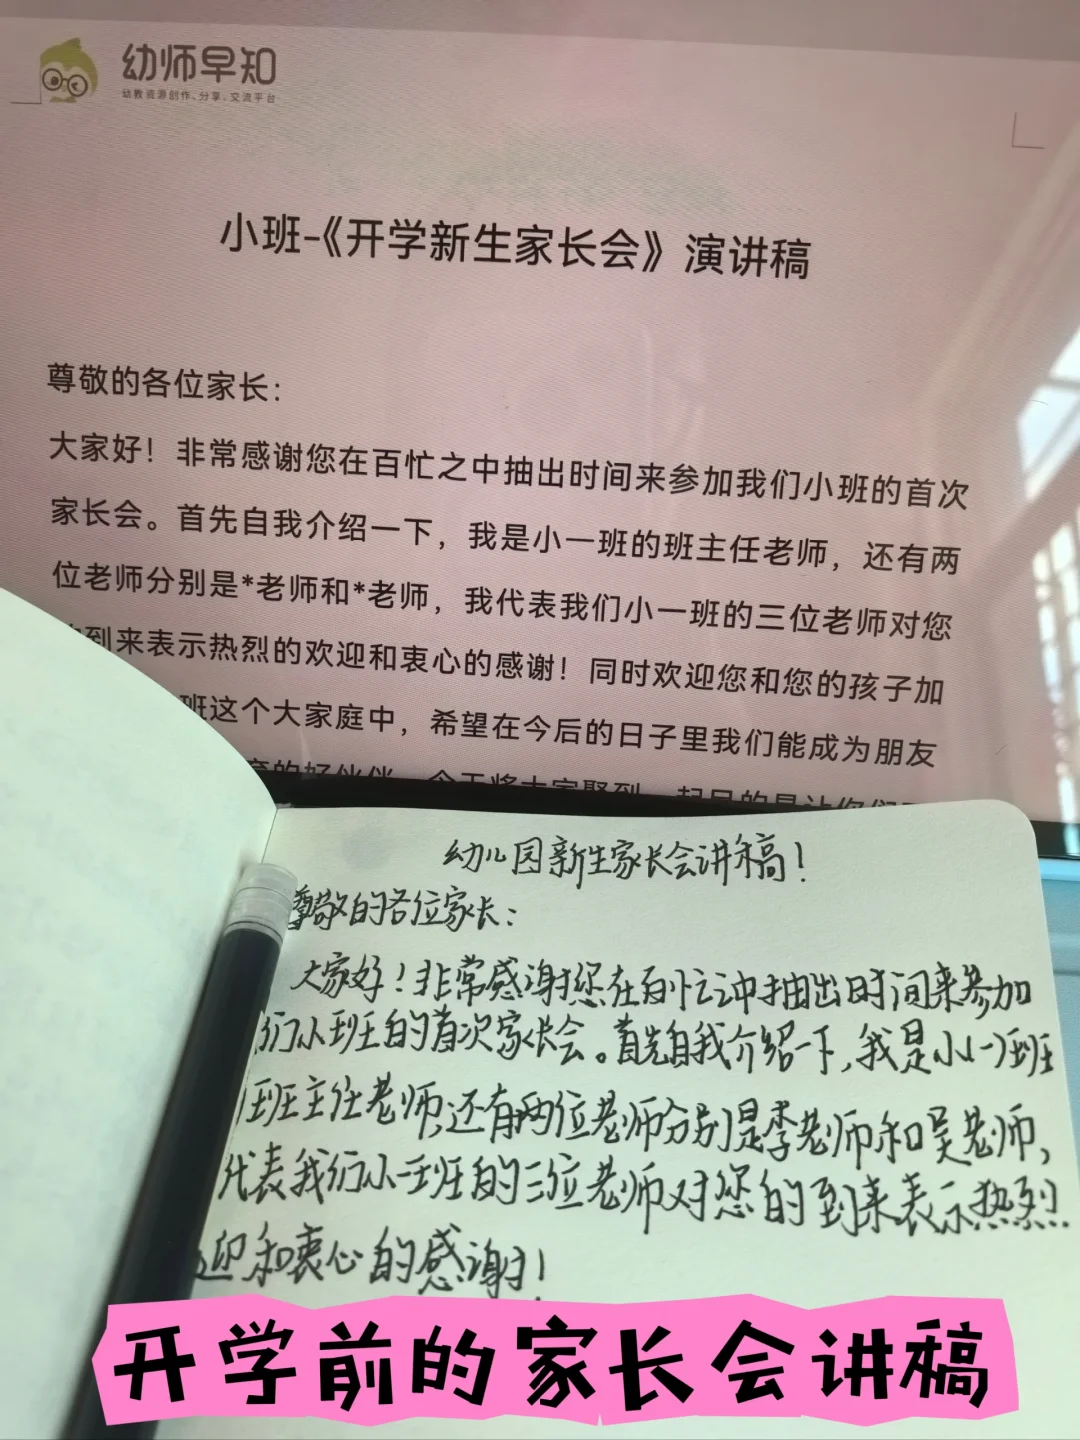 幼师早知
幼教资源创作、分享、交流平台
小班-《开学新生家长会》演讲稿
尊敬的各位家长：
大家好！非常感谢您在百忙之中抽出时间来参加我们小班的首次
家长会。首先自我介绍一下，我是小一班的班主任老师，还有两
位老师分别是*老师和*老师，我代表我们小一班的三位老师对您
到来表示热烈的欢迎和衷心的感谢！同时欢迎您和您的孩子加
班这个大家庭中，希望在今后的日子里我们能成为朋友
的好伙伴。今天将大家聚到一起目的是让你们
幼儿园新生家长会讲稿！
尊敬的各位家长：
大家好！非常感谢您在百忙之中抽出时间来参加
们小班的首次家长会。首先自我介绍一下，我是小一班
班主任老师，还有两位老师分别是李老师和吴老师，
代表我们小一班的三位老师对您的到来表示热烈
迎和衷心的感谢！
开学前的家长会讲稿